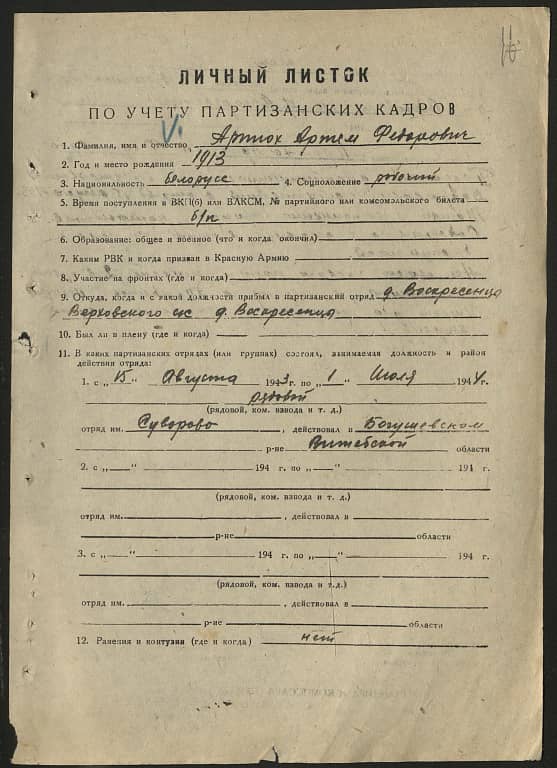 ЛИЧНЫЙ ЛИСТОК
ПО УЧЕТУ ПАРТИЗАНСКИХ КАДРОВ
1. Фамилия, имя и отчество Артюх Артем Федорович
2. Год и место рождения 1913
3. Национальность белорусс 4. Соцположение рабочий
5. Время поступления в ВКП(б) или ВЛКСМ, № партийного или комсомольского билета
б/п
6. Образование: общее и военное (что и когда окончил)
7. Каким РВК и когда призван в Красную Армию
8. Участие на фронтах (где и когда)
9. Откуда, когда и с какой должности прибыл в партизанский отряд д. Воскресенцо
Верховского с/с д. Воскресенцо
10. Был ли в плену (где и когда)
11. В каких партизанских отрядах (или группах) состоял, занимаемая должность и район
действия отряда:
1. с „15" Августа 1943 г. по „1" Июля 1944 г.
рядовой
(рядовой, ком. взвода и т. д.)
отряд им. Суворово, действовал в Богушевском
р-не Витебской области
2. с „ " 194 г. по „ " 194 г.
(рядовой, ком. взвода и т. д.)
отряд им. , действовал в
р-не области
3. с „ " 194 г. по „ " 194 г.
(рядовой, ком. взвода и т.д.)
отряд им. , действовал в
р-не области
12. Ранения и контузии (где и когда) нет